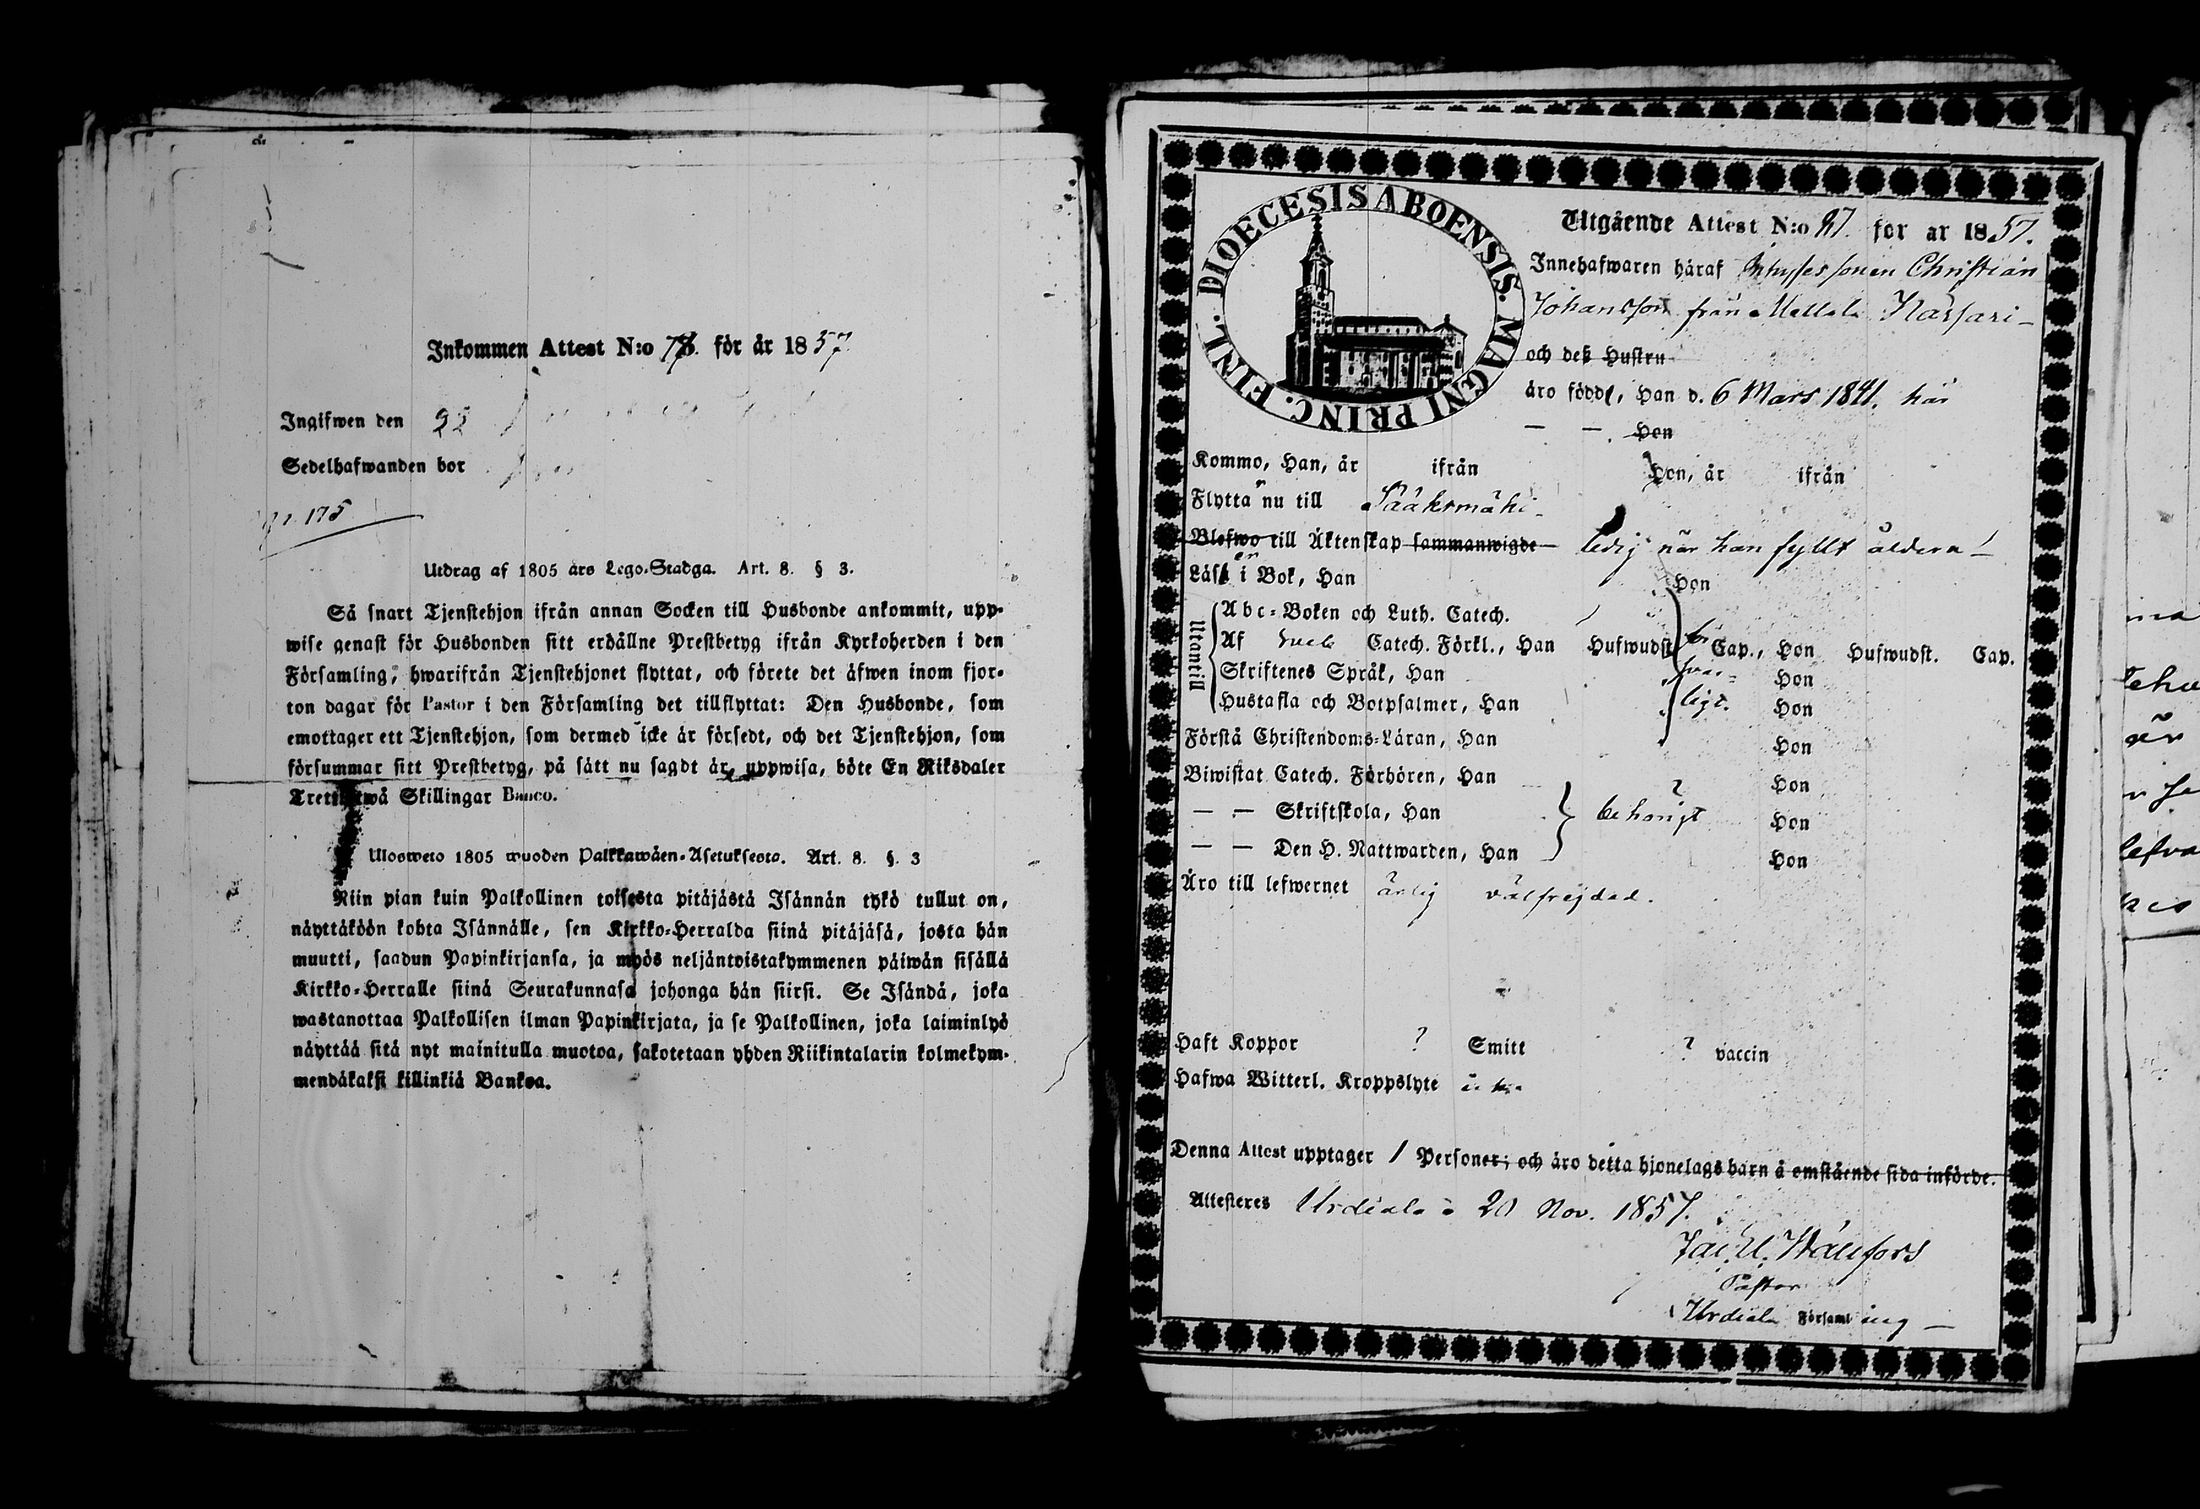 Inkommen Attest N:o 78. för år 1857
Ingifwen den
Sedelhafwanden bor
175
Utdrag af 1805 års Lego-Stadga. Art. 8. § 3.
Så snart Tjenstehjon ifrån annan Socken till Husbonde ankommit, upp-
wise genast för Husbonden sitt erhållne Prestbetyg ifrån Kyrkoherden i den
Församling, hwarifrån Tjenstehjonet flyttat, och förete det äfwen inom fjor-
ton dagar för Pastor i den Församling det tillflyttat: Den Husbonde, som
emottager ett Tjenstehjon, som dermed icke är försedt, och det Tjenstehjon, som
försummar sitt Prestbetyg, på sätt nu sagdt är, uppwisa, böte En Riksdaler
Trettiotwå Skillingar Banco.
Ulosweto 1805 wuoden Palkkawäen-Asetuksesta. Art. 8. §. 3
Niin pian kuin Palkollinen toisesta pitäjästä Isännän tykö tullut on,
näyttäköön kohta Isännälle, sen Kirkko-Herralda siinä pitäjäsä, josta hän
muutti, saadun Papinkirjansa, ja myös neljäntoistakymmenen päiwän sisällä
Kirkko-Herralle siinä Seurakunnasa johonga hän siirsi. Se Isändä, joka
wastanottaa Palkollisen ilman Papinkirjata, ja se Palkollinen, joka laiminlyö
näyttää sitä nyt mainitulla muotoa, sakotetaan yhden Riikintalarin kolmekym-
mendäkaksi killinkiä Bankoa.
DIOECESIS ABOENSIS. MAGNI PRINC. FINL.
Utgående Attest N:o 27. för år 1857.
Innehafwaren häraf Christian
Johansson från Mellola
och deß Hustru
äro född, Han d. 6 Mars 1841. här
— — . Hon
Kommo, Han, år ifrån Hon, år ifrån
Flyttar nu till Sääksmäki
Blefwo till Äktenskap sammanwigde ledig när han fyllt åldern
Läser i Bok, Han Hon
Utantill
Abc-Boken och Luth. Catech.
Af Catech. Förkl., Han Hufwudst. Cap., Hon Hufwudst. Cap.
Skriftenes Språk, Han för Hon
Hustafla och Botpsalmer, Han swar- ligt. Hon
Förstå Christendoms-Läran, Han Hon
Biwistat Catech. Förhören, Han Hon
— — Skriftskola, Han behörigt Hon
— — Den H. Nattwarden, Han Hon
Äro till lefwernet ärlig välfrejdad.
Haft Koppor ? Smitt ? vaccin
Hafwa Witterl. Kroppslyte
Denna Attest upptager 1 Personer; och äro detta hjonelags barn å omstående sida införde.
Attesteres Urdiala d 20 Nov. 1857.
Pastor
Urdiala Församling